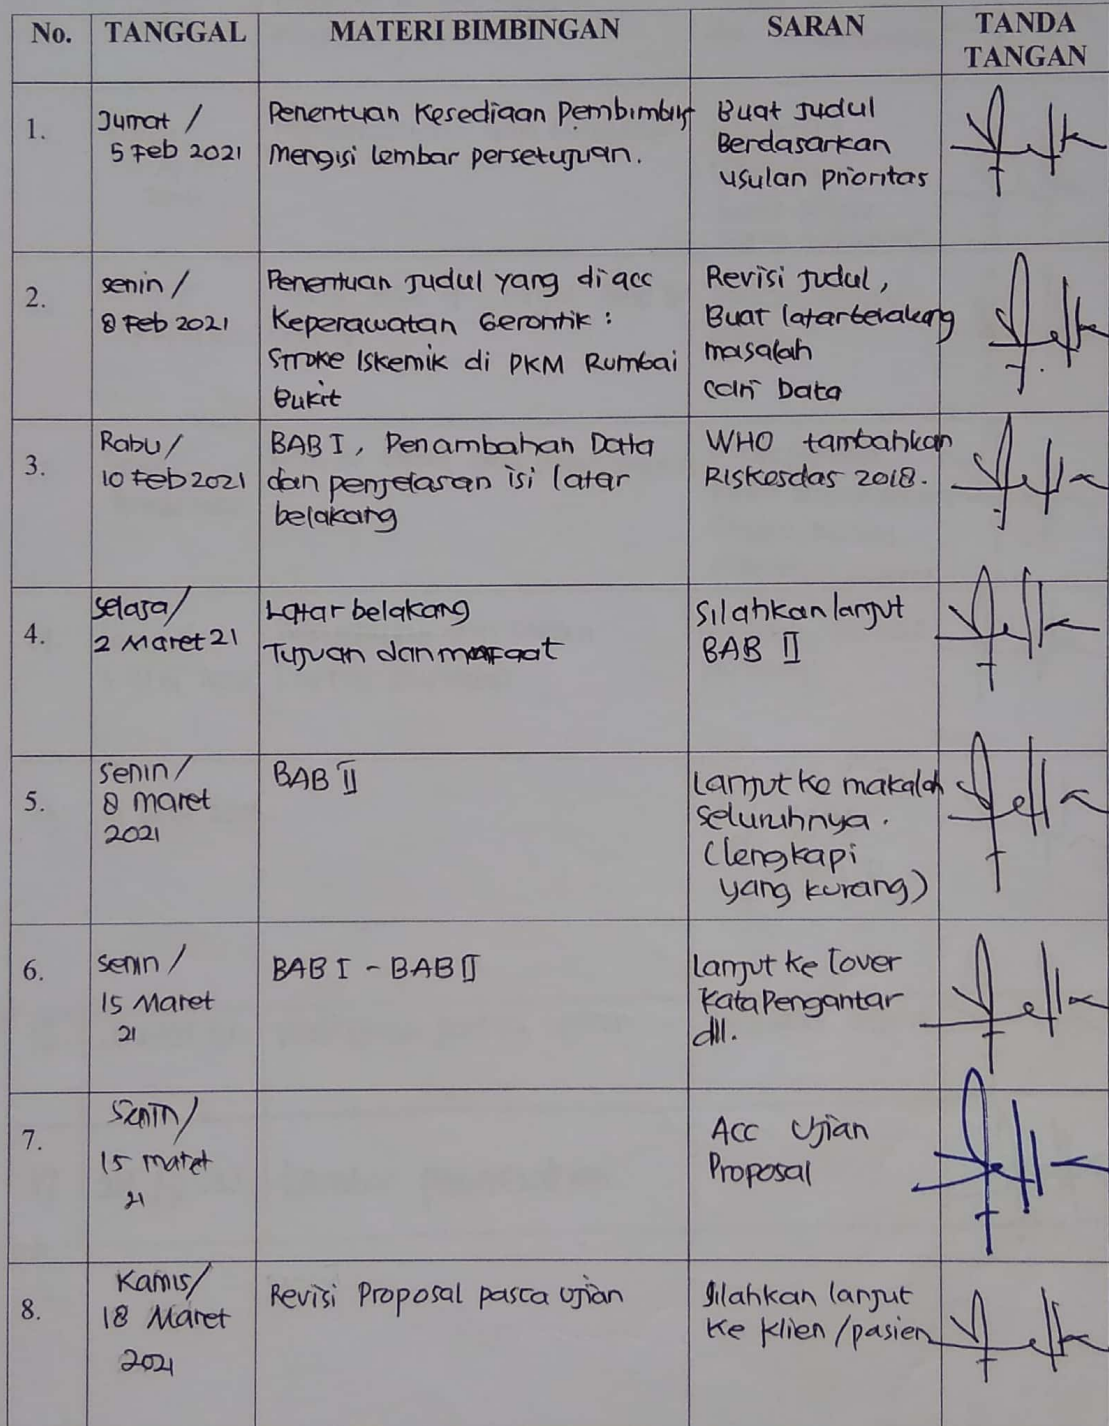 No. TANGGAL MATERI BIMBINGAN SARAN TANDA TANGAN
1.
Jumat /
5 Feb 2021
Penentuan Kesediaan Pembimbing
Mengisi lembar persetujuan.
Buat Judul
Berdasarkan
usulan prioritas
2.
senin /
8 Feb 2021
Penentuan Judul yang di acc
Keperawatan Gerontik :
Stroke Iskemik di PKM Rumbai
Bukit
Revisi Judul,
Buat latarbelakang
masalah
cari Data
3.
Rabu /
10 Feb 2021
BAB I, Penambahan Data
dan penjelasan isi latar
belakang
WHO tambahkan
Riskesdas 2018.
4.
Selasa/
2 Maret 21
Latar belakang
Tujuan dan manfaat
Silahkan lanjut
BAB II
5.
Senin /
8 maret
2021
BAB II
Lanjut ke makalah
Seluruhnya.
(lengkapi
yang kurang)
6.
senin /
15 Maret
21
BAB I - BAB II
Lanjut ke Cover
Kata Pengantar
dll.
7.
Senin/
15 maret
21
Acc Ujian
Proposal
8.
Kamis/
18 Maret
2021
Revisi Proposal pasca ujian
Silahkan lanjut
ke klien / pasien